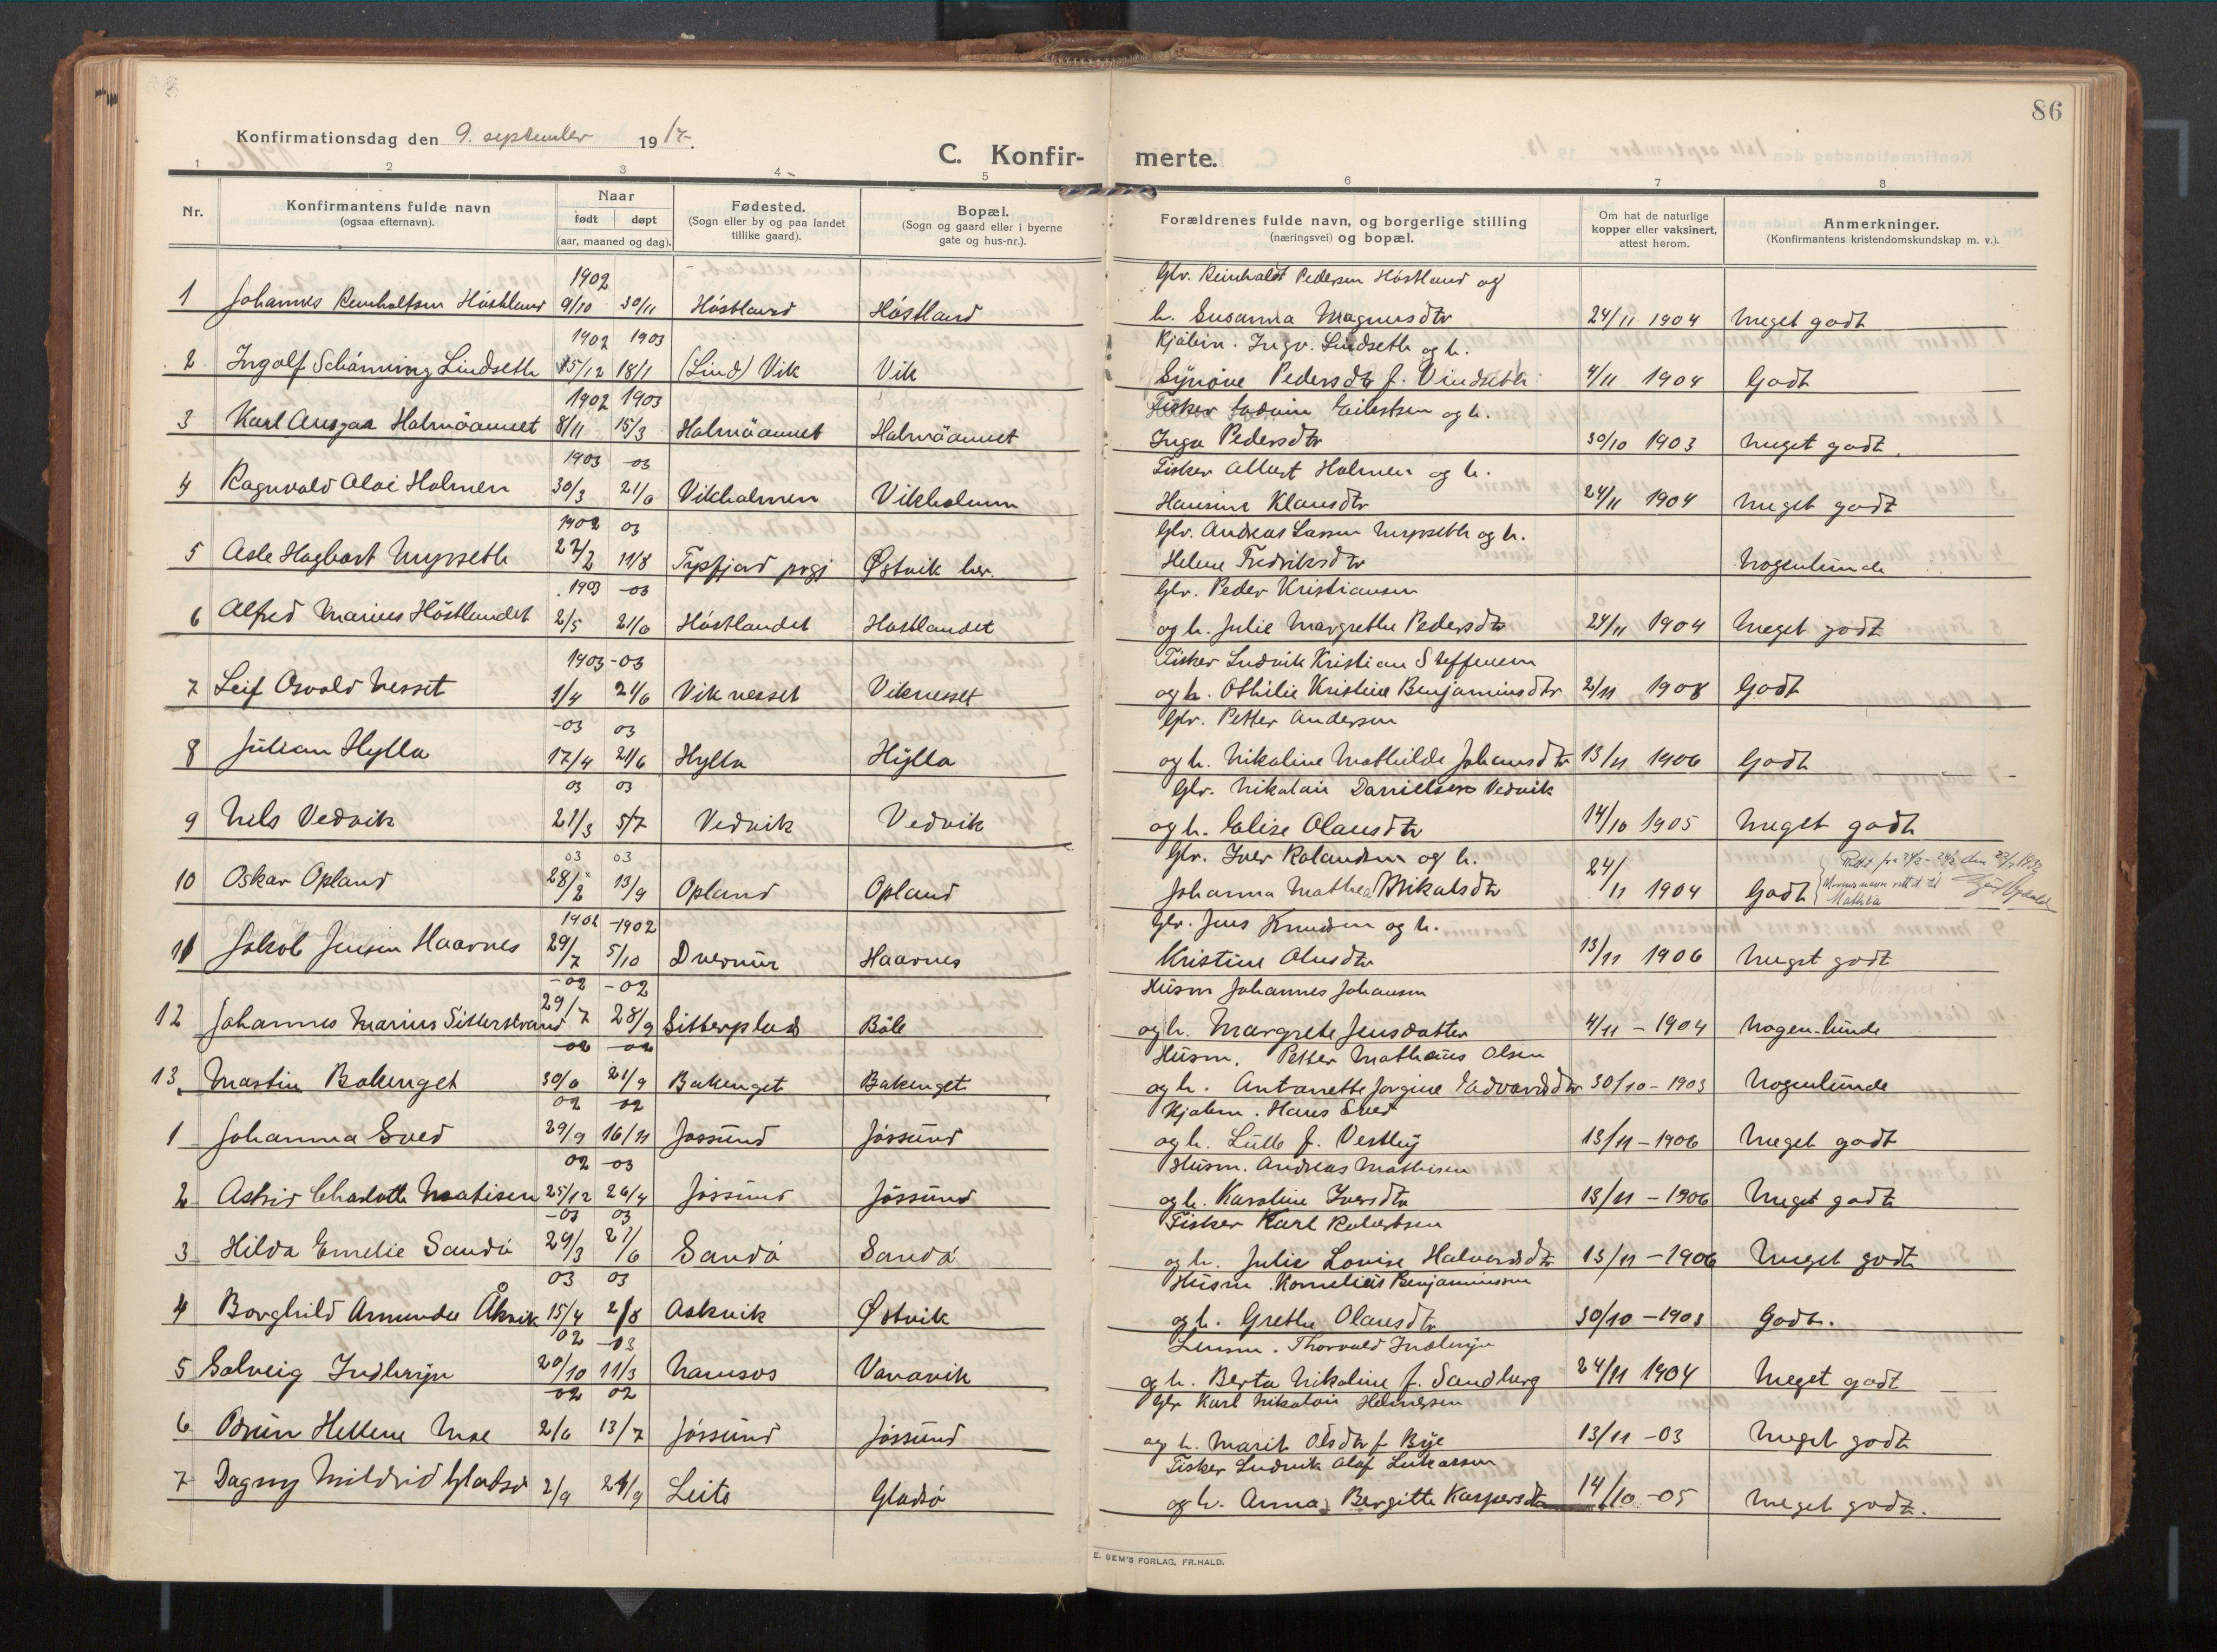 86
Konfirmationsdag den 9. september 1917.
C. Konfir- merte.
1 2 3 4 5 6 7 8
Nr.
Konfirmantens fulde navn
(ogsaa efternavn).
Naar
født døpt
(aar, maaned og dag).
Fødested.
(Sogn eller by og paa landet
tillike gaard).
Bopæl.
(Sogn og gaard eller i byerne
gate og hus-nr.).
Forældrenes fulde navn, og borgerlige stilling
(næringsvei) og bopæl.
Om hat de naturlige
kopper eller vaksinert,
attest herom.
Anmerkninger.
(Konfirmantens kristendomskundskap m. v.).
1902 Glr. Reinholdt Pedersen Höstland og
1 Johannes Reinholtsen Höstland 9/10 30/11 Höstland Höstland h. Susanna Magnusdtr 24/11 1904 Meget godt
1902 1903 Kjøbm. Ingv. Lindseth og h.
2. Ingolf Schönning Lindseth 15/12 18/1 (Lind) Vik Vik Synöve Pedersdtr f. Vindseth 4/11 1904 Godt
1902 1903 Fisker Edvin Eilertsen og h.
3 Karl Ansgar Holmöamnet 8/11 15/3 Holmöamnet Holmöamnet Inga Pedersdtr 30/10 1903 Meget godt.
1903 -03 Fisker Albert Holmen og h.
4 Ragnvald Aloi Holmen 30/3 21/6 Vikholmen Vikholmen Hansine Klausdtr 24/11 1904 Meget godt
1902 03 Glr. Andreas Larsen Myrseth og h.
5 Asle Hagbart Myrseth 27/2 11/8 prgj Østvik Helene Fredriksdtr Nogenlunde
1903 -03 Glr. Peder Kristiansen
6 Alfred Marius Höstlandet 2/5 21/6 Höstlandet Höstlandet og h. Julie Margrethe Pedersdtr 24/11 1904 Meget godt
1903 -03 Fisker Ludvik Kristian Steffensen
7 Leif Osvald Nesset 1/4 21/6 Viknesset Viknesset og h. Othilie Kristine Benjaminsdtr 2/11 1908 Godt
-03 03 Glr. Petter Andersen
8 Julian Hylla 17/4 21/6 Hylla Hylla og h. Nikoline Mathilde Johansdtr 13/11 1906 Godt
03 03 Glr. Nikolai Danielsen Vedvik
9 Nels Vedvik 21/3 5/7 Vedvik Vedvik og h. Elise Olausdtr 14/10 1905 Meget godt
03 03 Glr. Iver Rolandsen og h.
10 Oskar Opland 28/2 13/9 Opland Opland Johanna Mathea Mikalsdtr 24/11 1904 Godt
Morens navn rettet til
Mathea
1902 -1902 Glr. Jens Knudsen og h.
11 Jakob Jensen Haarnes 29/7 5/10 Haarnes Kristine Olusdtr 13/11 1906 Meget godt
-02 -02 Husm Johannes Johansen
12 Johannes Marius Sitterstrand 29/7 28/9 Sitterplads Böle og h. Margrete Jensdatter 4/11 - 1904 Nogen-lunde
-02 -02 Husm. Petter Mathæus Olsen
13. Martin Bakenget 30/6 21/9 Bakenget Bakenget og h. Antonette Jorgine Edvardsdtr 30/10 - 1903 Nogenlunde
02 -02 Kjøbm. Hans Sved
1 Johanna Sved 29/9 16/11 Jössund Jössund og h. Lulle f. Vestby 13/11 - 1906 Meget godt
02 -03 Husm. Andreas Mathisen
2 Astrid Charlotte Matisen 25/12 26/4 Jössund Jössund og h. Karoline Iversdtr 13/11 - 1906 Meget godt
-03 03 Fisker Karl Robertsen
3 Hilda Emelie Sandö 29/3 21/6 Sandö Sandö og h. Julie Lovise Halvorsdtr 13/11 - 1906 Meget godt
03 03 Husm. Kornelius Benjaminsen
4 Borghild Amanda Åkvik 15/4 2/8 Aakvik Østvik og h. Grethe Olausdtr 30/10 - 1903 Godt.
02 -03 Lensm. Thorvald Inderøyn
5 Solveig Inderøyn 20/10 11/3 Namsos Vanavik og h. Berta Nikoline f. Sandberg 24/11 1904 Meget godt
02 02 Glr Karl Nikolai Helmersen
6 Hellene Moe 2/6 13/7 Jössund Jössund og h. Marit Olsdtr f Bye 13/11 -03 Meget godt
Fisker Ludvik Olaf Lukassen
7 Dagny Mildrid Gladsö 2/9 21/9 Leite Gladsö og h. Anna Bergitte Kaspersdtr 14/10 -05 Meget godt.
E. SEM'S FORLAG, FR.HALD.